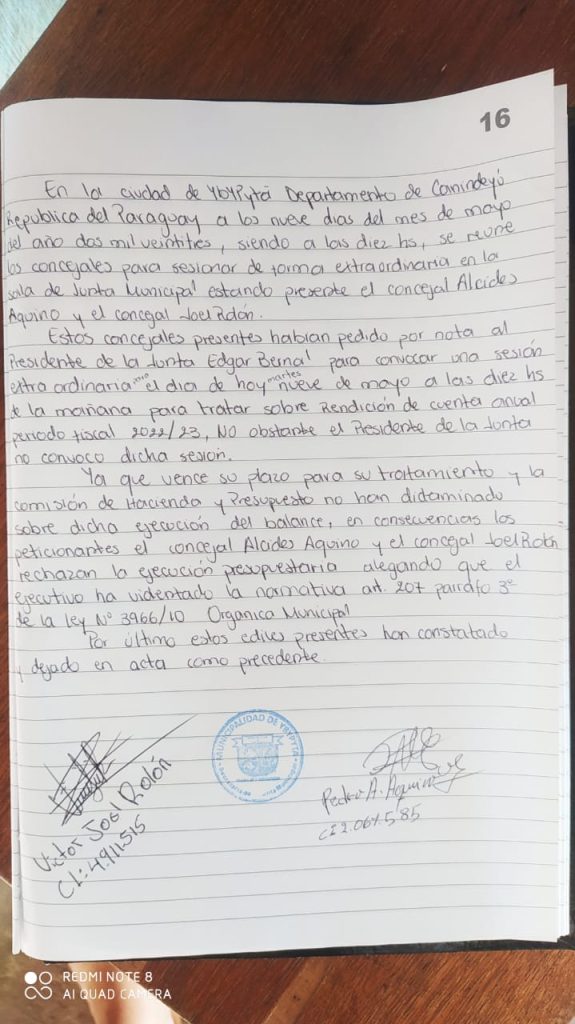 16
En la ciudad de YbyPytã Departamento de Canindeyú
Republica del Paraguay a los nueve dias del mes de mayo
del año dos mil veintitres, siendo a las diez hs, se reune
los concejales para sesionar de forma extraordinaria en la
sala de Junta Municipal estando presente el concejal Alcides
Aquino y el concejal Joel Rolón.
Estos concejales presentes habian pedido por nota al
Presidente de la Junta Edgar Bernal para convocar una sesión
extra ordinaria el dia de hoy martes nueve de mayo a las diez hs
de la mañana para tratar sobre Rendición de cuenta anual
periodo fiscal 2022/23, NO obstante el Presidente de la Junta
no convoco dicha sesión.
Ya que vence su plazo para su tratamiento y la
comisión de Hacienda y Presupesto no han dictaminado
sobre dicha ejecución del balance, en consecuencias los
peticionantes el concejal Alcides Aquino y el concejal Joel Rolón
rechazan la ejecución presupuestaria alegando que el
ejecutivo ha violentado la normativa art. 207 parrafo 3º
de la ley Nº 3966/10 Organica Municipal
Por último estos ediles presentes han constatado
y dejado en acta como precedente.
MUNICIPALIDAD DE YBYPYTA
Victor Joel Rolón
CI.: 4.911.515
Pedro A. Aquino
CI 2.061.585
REDMI NOTE 8
AI QUAD CAMERA